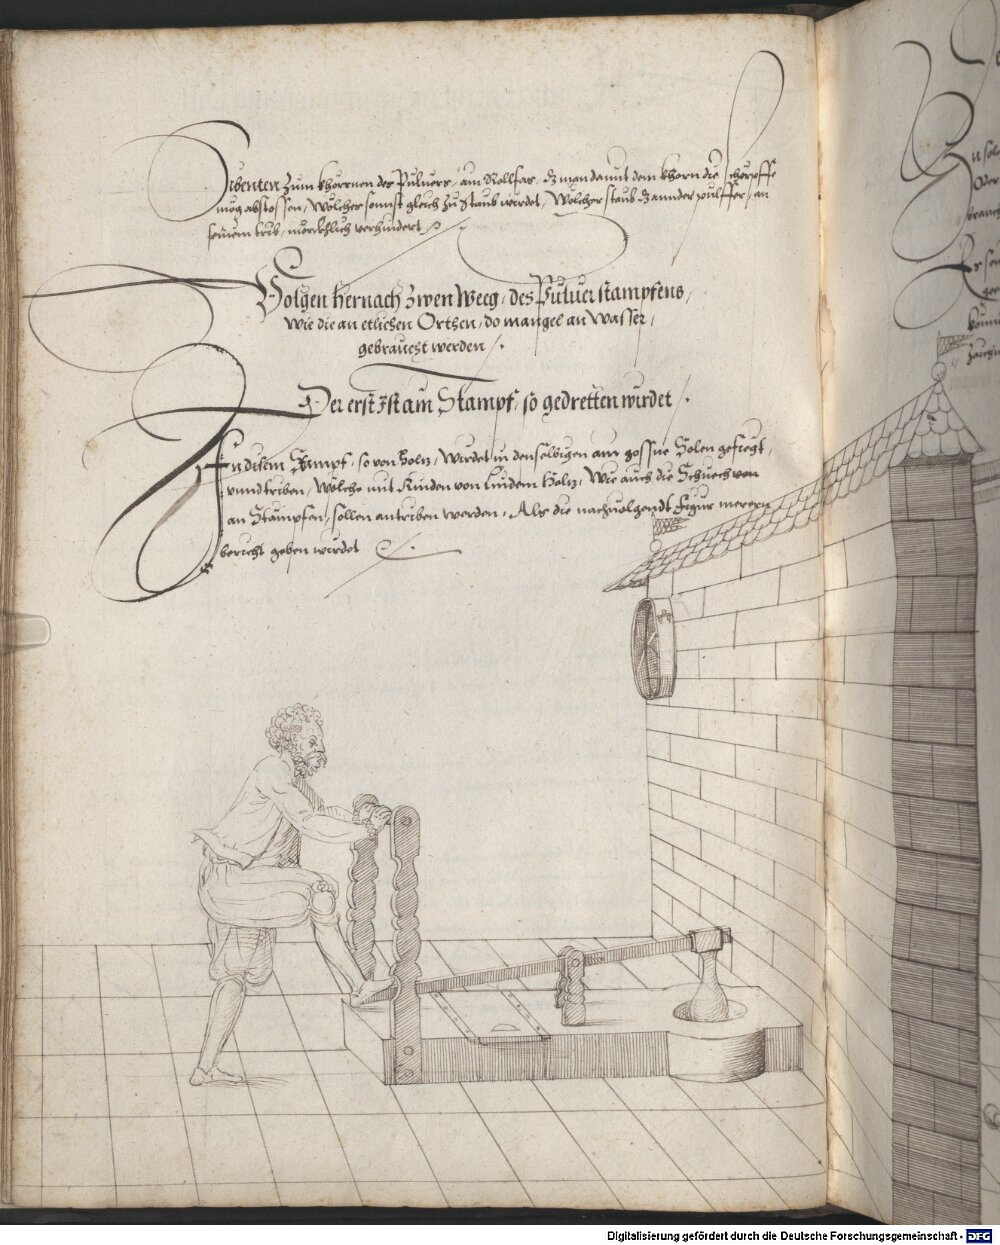 Sibenten zum khörnen des Puluers, ain Rollfas, dz man damit dem khorn die schörpffe
mög abstossen, wölches sonnst gleich zu Staub wirdet, wölcher staub dz annder pulffer, an
seinem trib, mörckhlich verhindert
Volgen hernach zwen weeg, des Puluer stampfens,
wie die an etlichen Orthen, do mangel an wasser,
gebraucht werden
Der erst Ist ain Stampf, so gedretten wirdet
In disem Stampf, so von Holtz, wirdet in denselbigen ain gossne Solen gefiegt,
vnnd triben, wölche mit Rinden von lindem Holtz, wie auch die Schuech von
an Stampfen, sollen antriben werden, Als die nachuolgendt Figur merern
bericht geben wirdet
Zu
Oder
brauch
Digitalisierung gefördert durch die Deutsche Forschungsgemeinschaft - DFG